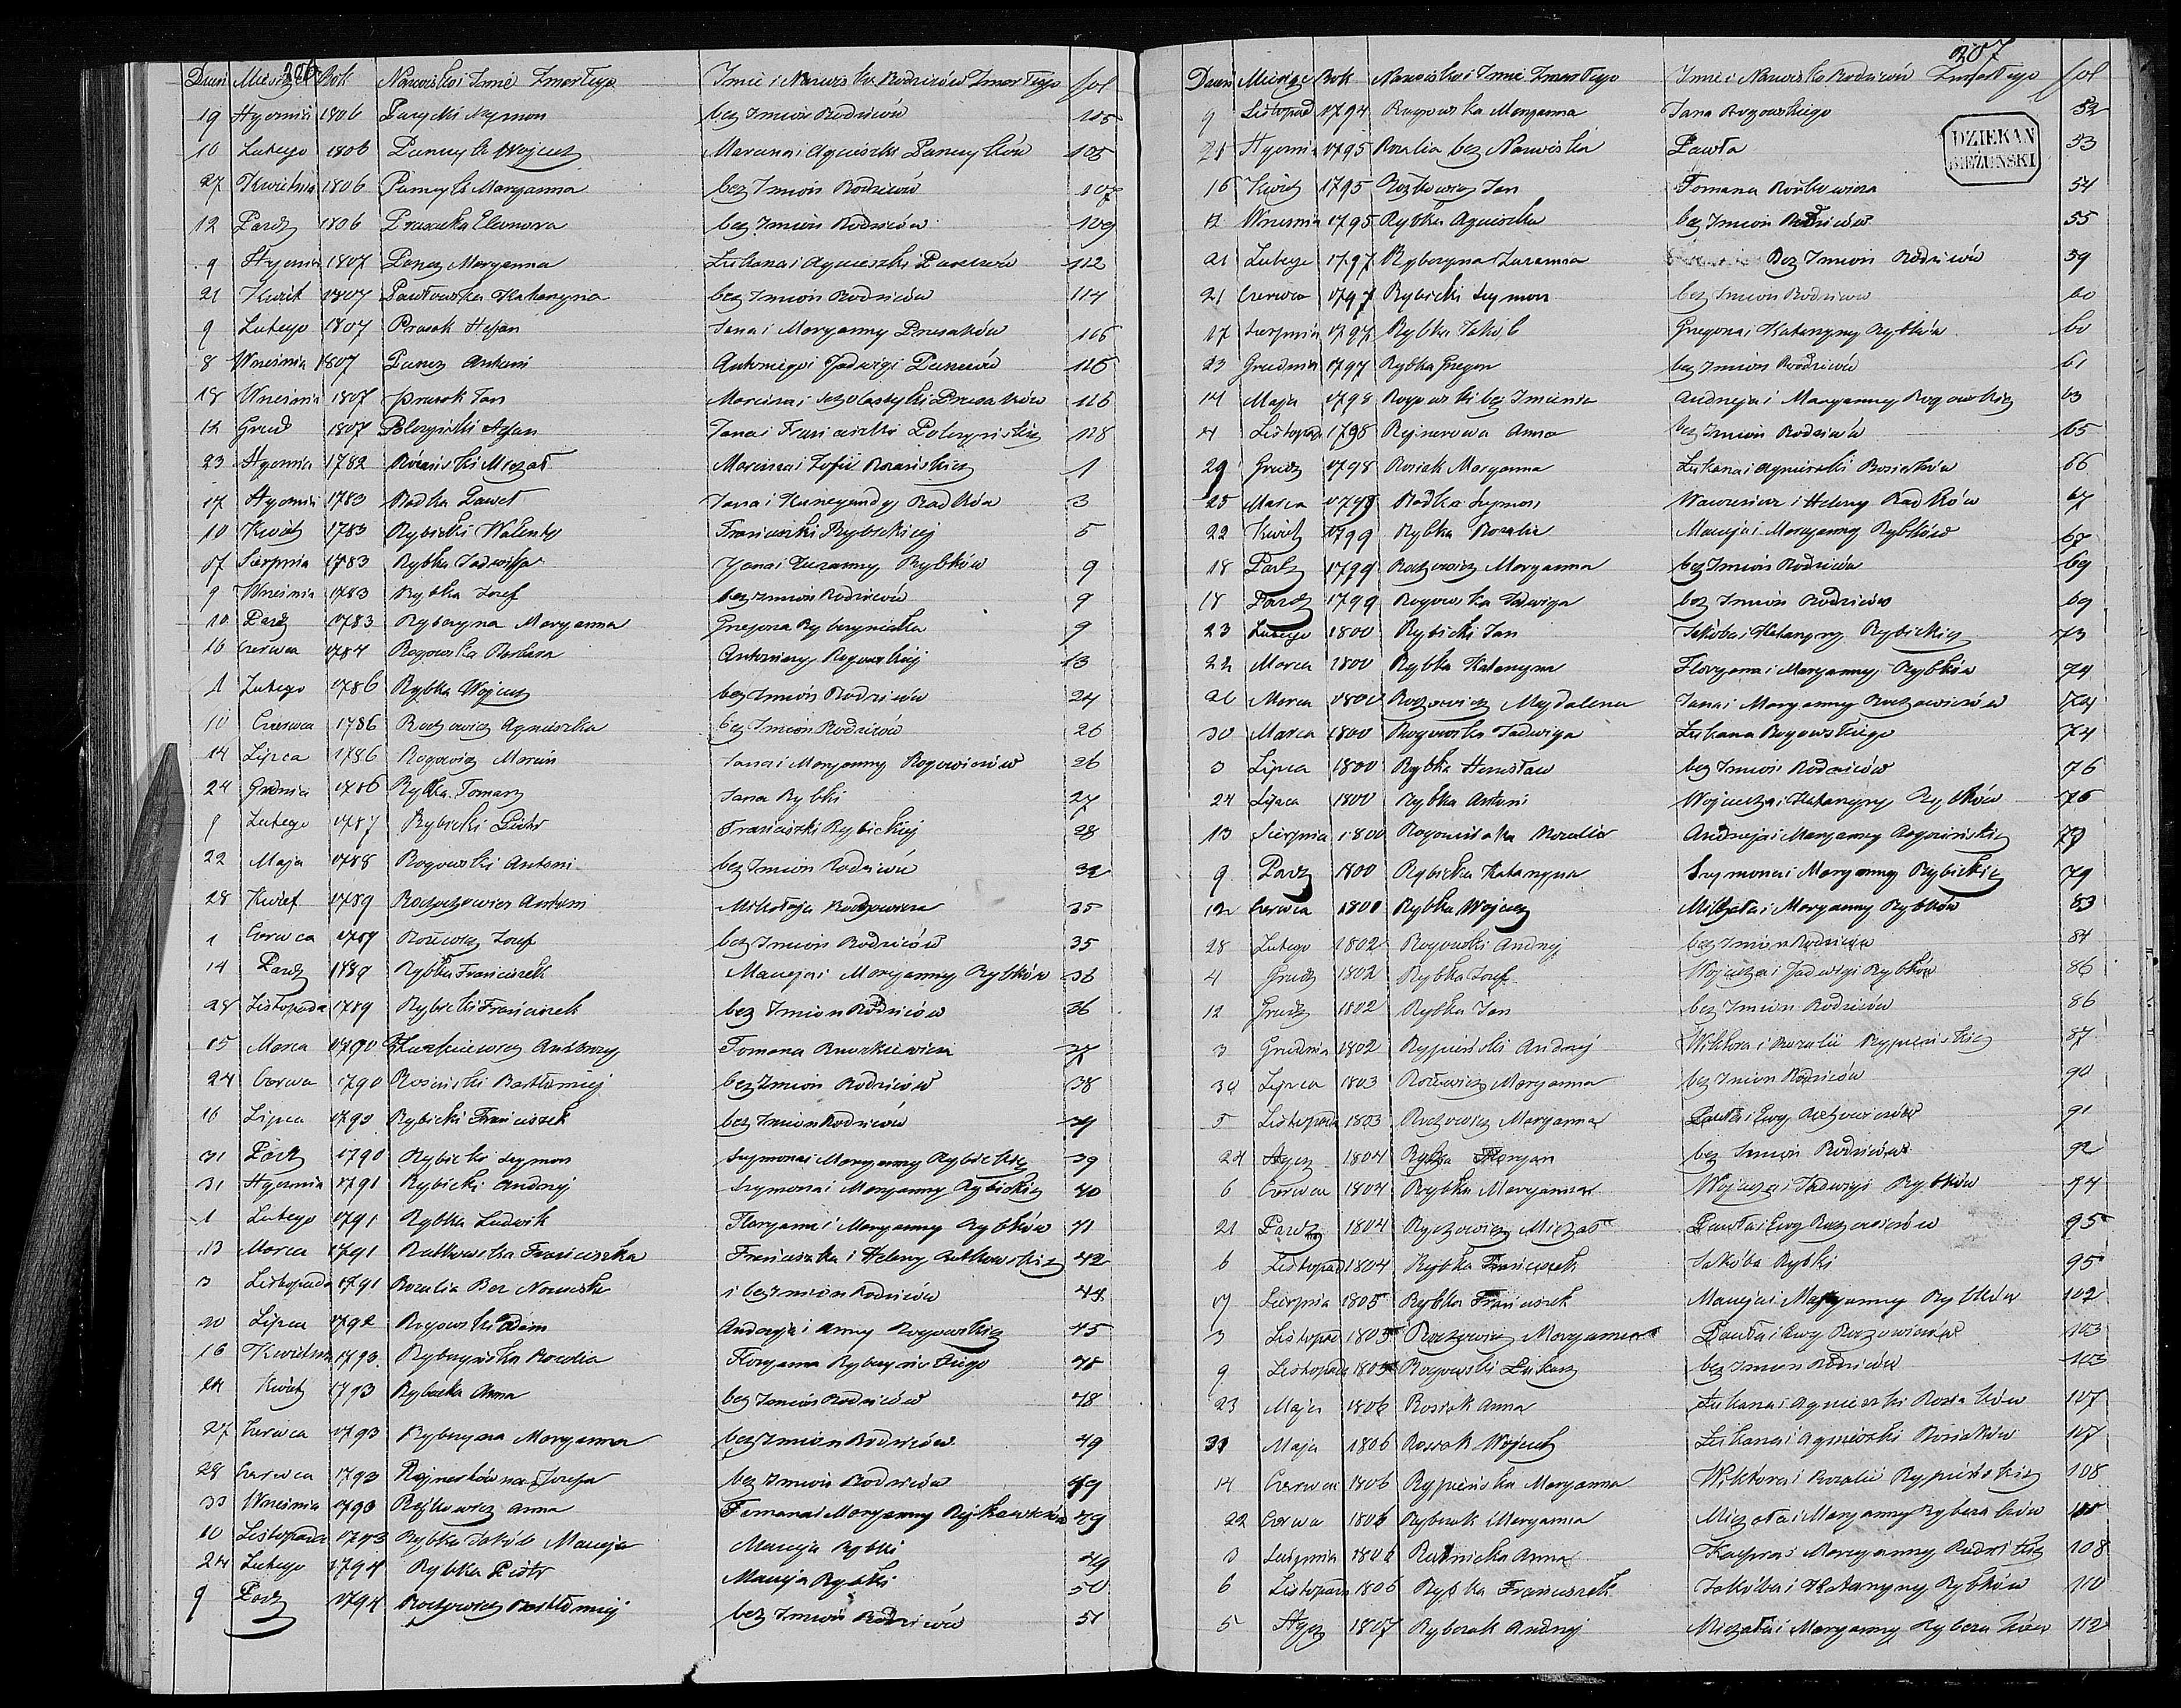 206
Dzień Miesiąc Rok Nazwisko i Imie Zmarłego Imie i Nazwisko Rodziców Zmarłego fol
19 Stycznia 1806 Szymon bez Imion Rodziców 105
10 Lutego 1806 Wojciech Marcina i Agnieszki 105
27 Kwietnia 1806 Maryanna bez Imion Rodziców 107
12 Paźdz 1806 Prusacka Eleonora bez Imion Rodziców 109
9 Stycznia 1807 Maryanna Łukasza i Agnieszki 112
21 Kwiet 1807 Pawłowska Katarzyna bez Imion Rodziców 114
9 Lutego 1807 Prusak Stefan Jana i Maryanny Prusaków 116
8 Września 1807 Antoni Antoniego i Jadwigi 116
18 Września 1807 Prusak Jan Marcina i Scholastyki Prusaków 116
12 Grud 1807 Stefan Jana i Franciszki 118
23 Stycznia 1782 Rózański Michał Marcina i Zofii Rózańskich 1
17 Stycznia 1783 Radka Paweł Jana i Kunegundy Radków 3
10 Kwiet 1783 Rybicki Walenty Franciszki Rybickiej 5
17 Sierpnia 1783 Rybka Jadwiga Jana i Zuzanny Rybków 9
9 Września 1783 Rybka Józef bez Imion Rodziców 9
10 Paźdz 1783 Ryberzyna Maryanna Grzegorza 9
16 Czerwca 1784 Rogowska Barbara Rogowskiej 13
1 Lutego 1786 Rybka Wojciech bez Imion Rodziców 24
10 Czerwca 1786 Roczowicz Agnieszka bez Imion Rodziców 26
14 Lipca 1786 Rogowicz Marcin Jana i Maryanny Rogowiczów 26
24 Grudnia 1786 Rybka Tomasz Jana Rybki 27
9 Lutego 1787 Rybicki Piotr Franciszki Rybickiej 28
22 Maja 1788 Rogowski Antoni bez Imion Rodziców 32
28 Kwiet 1789 Antoni Mikołaja 35
1 Czerwca 1789 Józef bez Imion Rodziców 35
14 Paźdz 1789 Rybka Franciszek Macieja i Maryanny Rybków 36
28 Listopada 1789 Rybicki Franciszek bez Imion Rodziców 36
15 Marca 1790 Ambroży Tomasza 37
24 Czerwca 1790 Rościński Bartłomiej bez Imion Rodziców 38
16 Lipca 1790 Rybicki Franciszek bez Imion Rodziców 39
31 Paźdz 1790 Rybicki Szymon Szymona i Maryanny Rybickich 39
31 Stycznia 1791 Rybicki Andrzej Szymona i Maryanny Rybickich 40
1 Lutego 1791 Rybka Ludwik Floryana i Maryanny Rybków 41
13 Marca 1791 Rutkowska Franciszka Franciszka i Heleny Rutkowskich 42
3 Listopada 1791 Rozalia Bez Nazwiska i bez Imion Rodziców 44
20 Lipca 1792 Rogowski Adam Andrzeja i Anny Rogowskich 45
16 Kwietnia 1793 Rybczyńska Rozalia Floryana Rybczyńskiego 48
24 Kwiet 1793 Rybicka Anna bez Imion Rodziców 48
27 Czerwca 1793 Ryberzyna Maryanna bez Imion Rodziców 49
28 Czerwca 1793 Józefa bez Imion Rodziców 49
30 Września 1793 Rożkowicz Anna Tomasza i Maryanny 49
10 Listopada 1793 Rybka Jakób Macieja Macieja Rybki 49
24 Lutego 1794 Rybka Piotr Macieja Rybki 50
9 Paźdz 1794 Roczowicz Bartłomiej bez Imion Rodziców 51
207
Dzień Miesiąc Rok Nazwisko i Imie Zmarłego Imie i Nazwisko Rodziców Zmarłego fol
DZIEKAN
BIEŻUŃSKI
9 Listopad 1794 Rogowska Maryanna Jana Rogowskiego 52
21 Stycznia 1795 Rozalia bez Nazwiska Pawła 53
16 Kwiet 1795 Rożkowicz Jan Tomasza Rożkowicza 54
12 Września 1795 Rybka Agnieszka bez Imion Rodziców 55
21 Lutego 1797 Ryberzyna Zuzanna Bez Imion Rodziców 59
21 Czerwca 1797 Rybicki Szymon bez Imion Rodziców 60
17 Sierpnia 1797 Rybka Jakób Grzegorza i Katarzyny Rybków 60
23 Grudnia 1797 Rybka Grzegorz bez Imion Rodziców 61
14 Maja 1798 Rogowski bez Imienia Andrzeja i Maryanny Rogowskich 63
21 Listopada 1798 Rejnerowa Anna bez Imion Rodziców 65
29 Grudz 1798 Rosiak Maryanna Łukasza i Agnieszki Rosiaków 66
25 Marca 1799 Radka Szymon Wawrzeńca i Heleny Radków 67
22 Kwiet 1799 Rybka Rozalia Macieja i Maryanny Rybków 67
18 Paźdz 1799 Roczowicz Maryanna bez Imion Rodziców 69
18 Paźdz 1799 Rogowska Jadwiga bez Imion Rodziców 69
23 Lutego 1800 Rybicki Jan Jakóba i Katarzyny Rybickich 73
22 Marca 1800 Rybka Katarzyna Floryana i Maryanny Rybków 74
26 Marca 1800 Roczowicz Magdalena Jana i Maryanny Roczowiczów 74
30 Marca 1800 Rogowska Jadwiga Łukasza Rogowskiego 74
3 Lipca 1800 Rybka Stanisław bez Imion Rodziców 76
24 Lipca 1800 Rybka Antoni Wojciecha i Katarzyny Rybków 76
13 Sierpnia 1800 Rozalia Andrzeja i Maryanny 79
9 Paźdz 1800 Rybicka Katarzyna Szymona i Maryanny Rybickich 79
12 Czerwca 1801 Rybka Wojciech Michała i Maryanny Rybków 83
28 Lutego 1802 Rogowski Andrzej bez Imion Rodziców 84
4 Grudz 1802 Rybka Józef Wojciecha i Jadwigi Rybków 86
12 Grudz 1802 Rybka Jan bez Imion Rodziców 86
3 Grudnia 1802 Rypieński Andrzej Wiktora i Rozalii Rypieńskich 87
30 Lipca 1803 Maryanna bez Imion Rodziców 90
5 Listopada 1803 Roczowicz Maryanna Pawła i Ewy Roczowiczów 91
24 Stycz 1804 Rybka Floryan bez Imion Rodziców 92
6 Czerwca 1804 Rybka Maryanna Wojciecha i Jadwigi Rybków 94
21 Paźdz 1804 Ryczowicz Michał Pawła i Ewy Roczowiczów 95
6 Listopad 1804 Rybka Franciszek Jakóba Rybki 95
17 Sierpnia 1805 Rybka Franciszek Macieja i Maryanny Rybków 102
3 Listopad 1805 Roczowicz Maryanna Pawła i Ewy Roczowiczów 103
9 Listopada 1805 Rogowski Łukasz bez Imion Rodziców 103
23 Maja 1806 Rosiak Anna Łukasza i Agnieszki Rosiaków 107
31 Maja 1806 Rosiak Wojciech Łukasza i Agnieszki Rosiaków 107
14 Czerwca 1806 Rypieńska Maryanna Wiktora i Rozalii Rypieńskich 108
22 Czerwca 1806 Ryberak Maryanna Michała i Maryanny Ryberaków
3 Sierpnia 1806 Rudnicka Anna Kacpra i Maryanny 108
6 Listopada 1806 Rybka Franciszek Jakóba i Katarzyny Rybków 110
5 Stycz 1807 Ryberak Andrzej Michała i Maryanny Ryberaków 112